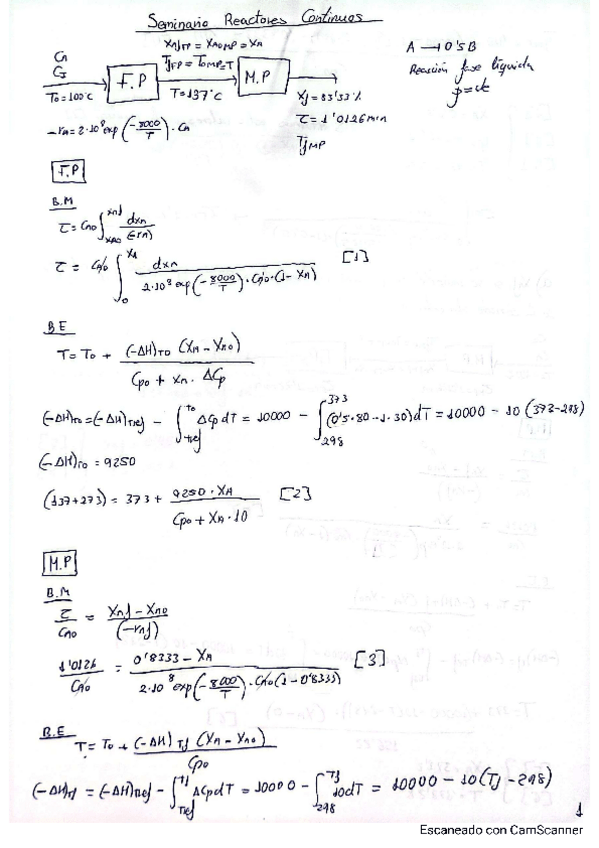 Seminario Reactores Continuos
C_A
C_I
T_0=100ºC
F.P
X_Ajfp = X_A0MP = X_A
T_jFP = T_0MP=T
T=137ºC
M.P
X_j=83'33%
τ=1'0126 min
T_jMP
A → 0'5B
Reacción fase líquida
ρ=cte
-r_A=2·10^8 exp(-8000/T)·C_A
F.P
B.M
τ=C_A0 ∫_{X_A0}^{X_Aj} dx_A/(-r_A)
τ = C_A0 ∫_0^{X_A} dx_A/(2·10^8 exp(-8000/T)·C_A0·(1-X_A)) [1]
B E
T=T_0 + (-ΔH)_T0 (X_A-X_A0)/(C_P0 + X_A·ΔC_p)
(-ΔH)_T0=(-ΔH)_Tref - ∫_{Tref}^{T0} ΔC_p dT = 10000 - ∫_{298}^{373} (0'5·80-1·30)dT = 10000 - 10(373-298)
(-ΔH)_T0 = 9250
(137+273) = 373 + 9250·X_A/(C_P0+X_A·10) [2]
M.P
B.M
τ/C_A0 = (X_Aj-X_A0)/(-r_Aj)
1'0126/C_A0 = (0'8333-X_A)/(2·10^8 exp(-8000/T)·C_A0(1-0'8333)) [3]
B.E
T=T_0 + (-ΔH)_Tj (X_A-X_A0)/C_P0
(-ΔH)_Tj = (-ΔH)_Tref - ∫_{Tref}^{Tj} ΔC_p dT = 10000 - ∫_{298}^{Tj} 10dT = 10000 - 10(T_j-298)
1
Escaneado con CamScanner